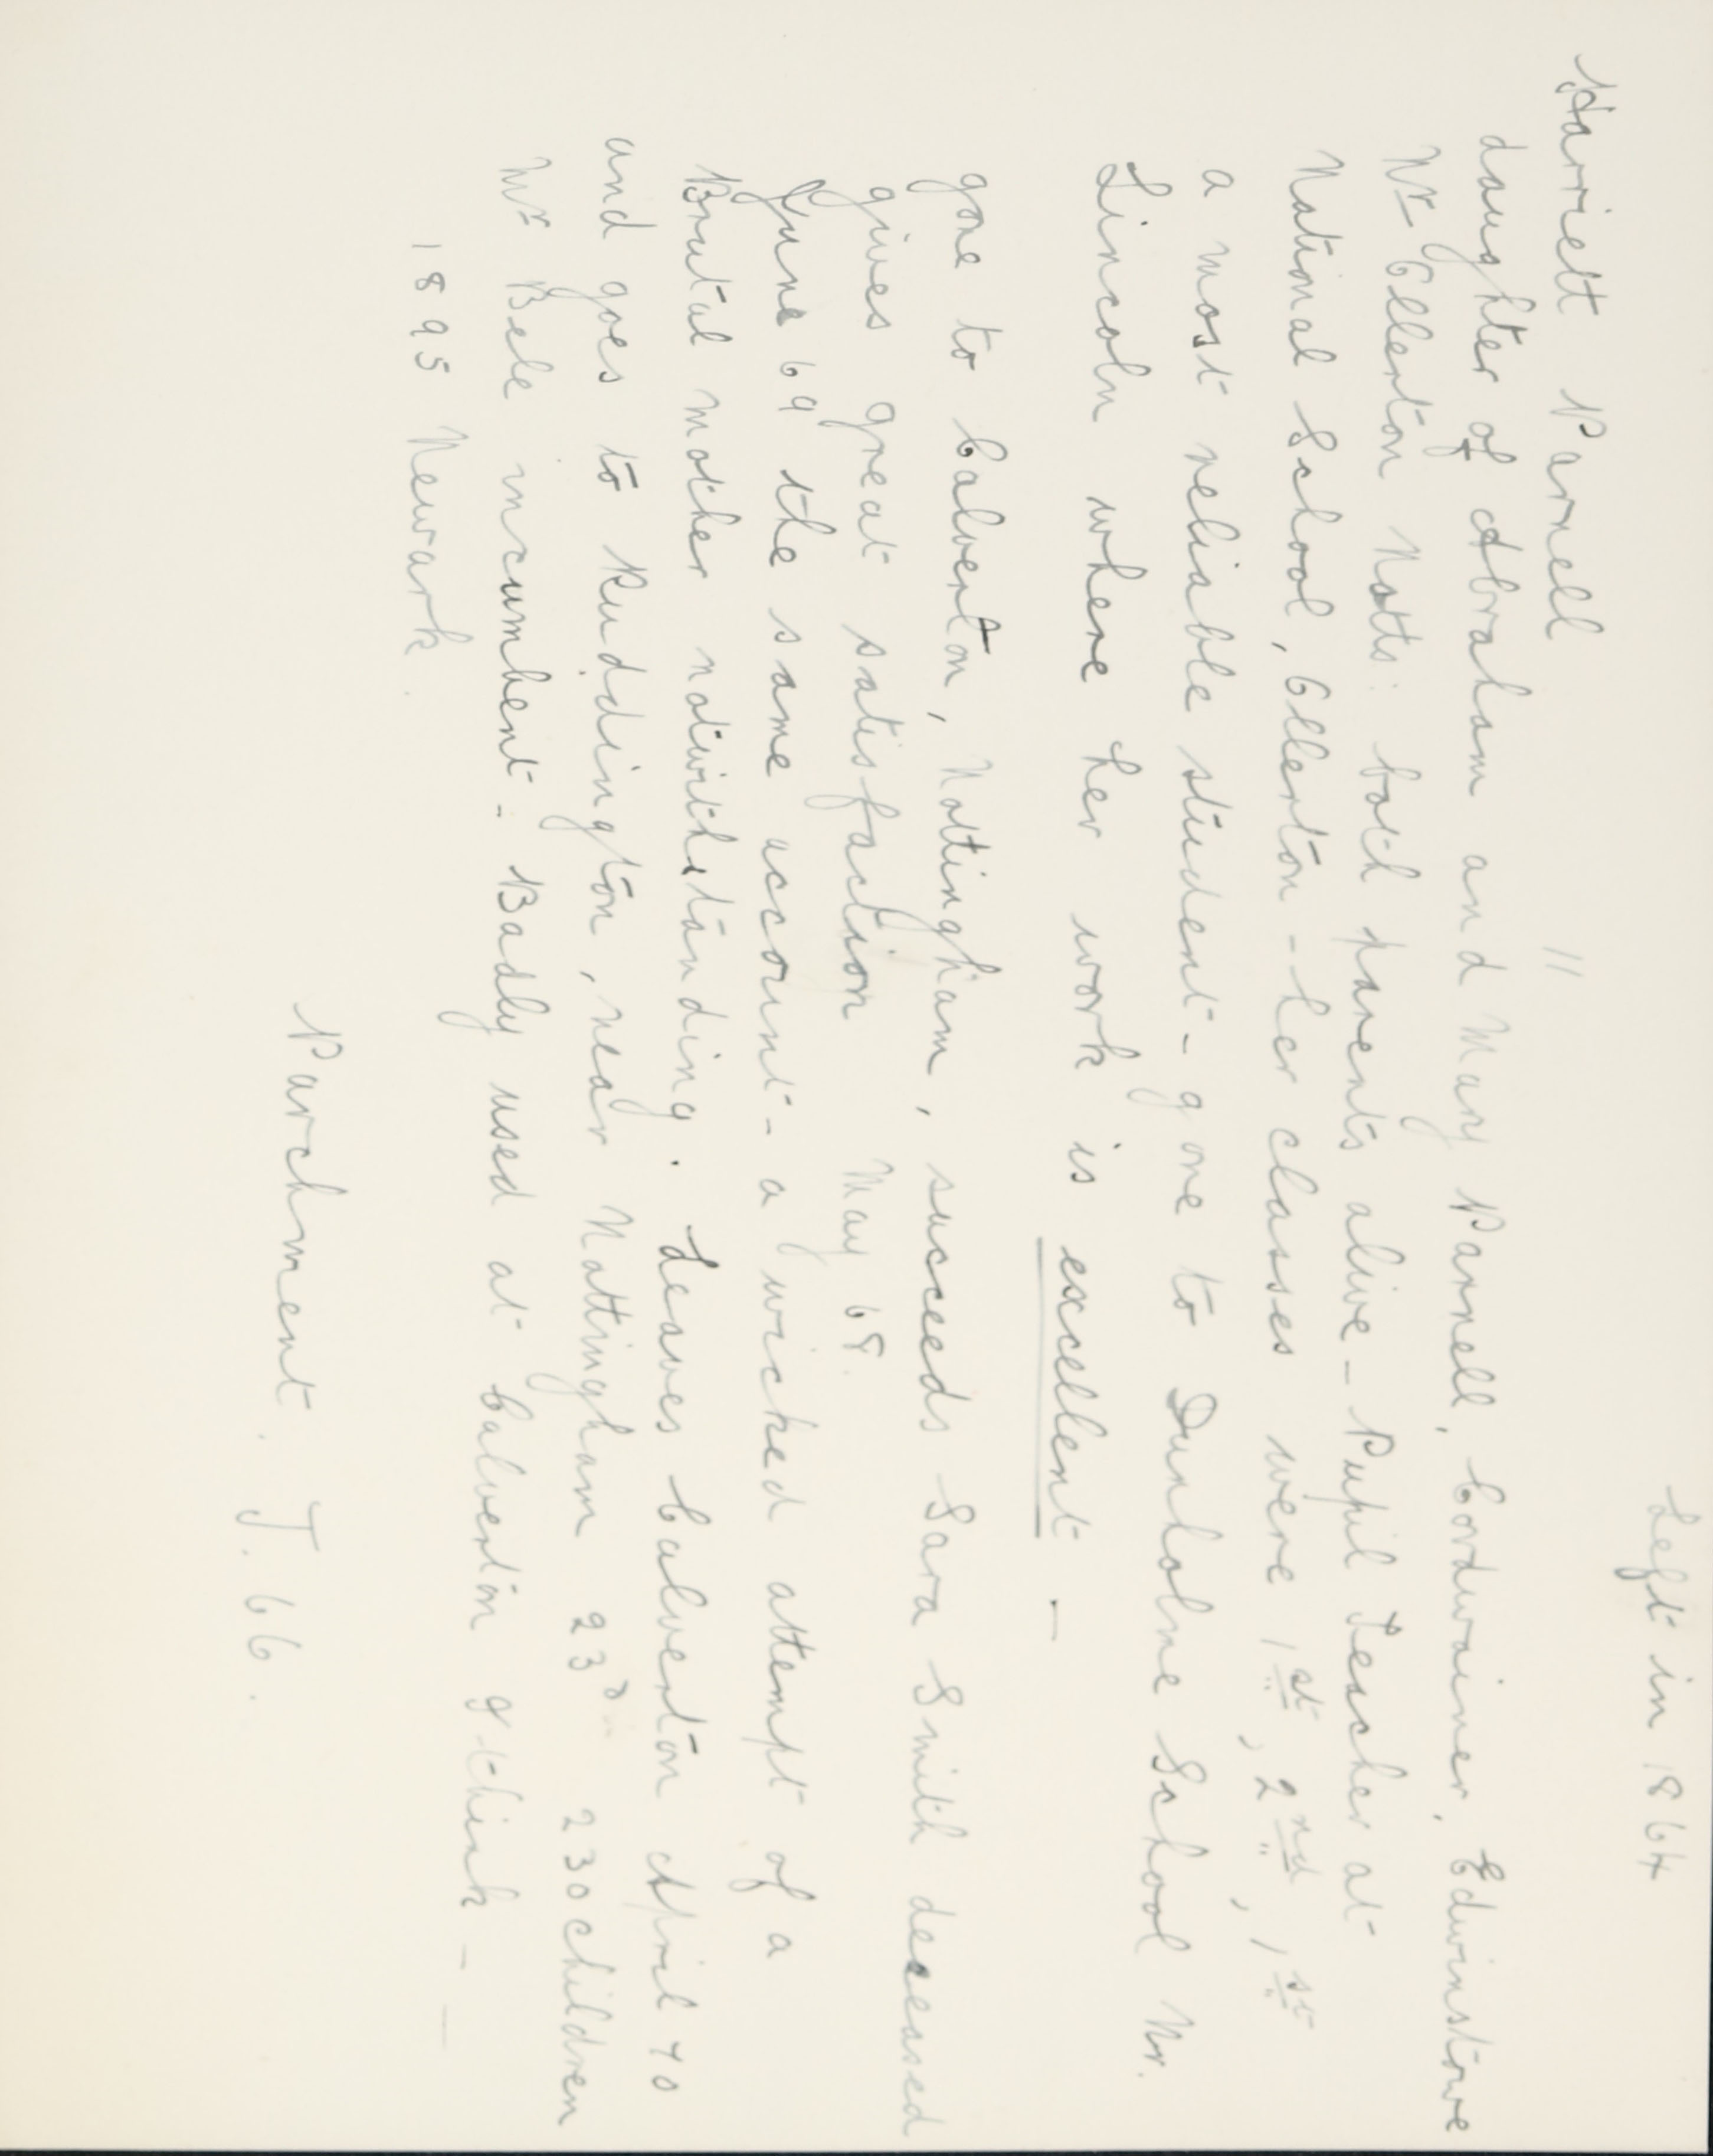 Left in 1864
Harriett Parnell "
daughter of Abraham and Mary Parnell, Cordwainer, Edwinstowe
Nr Ollerton Notts: both parents alive - Pupil Teacher at
National School, Ollerton - her classes were 1st, 2nd, 1st
a most reliable student - gone to Dunholme School Nr.
Lincoln where her work is excellent -
gone to Calverton, Nottingham, succeeds Sara Smith deceased
gives great satisfaction May 68.
June 69 the same account - a wicked attempt of a
Brutal mother notwithstanding. Leaves Calverton April 70
and goes to Ruddington, near Nottingham 23d 230 children
Mr Bele incumbent - Badly used at Calverton I think -
1895 Newark.
Parchment. J. 66.